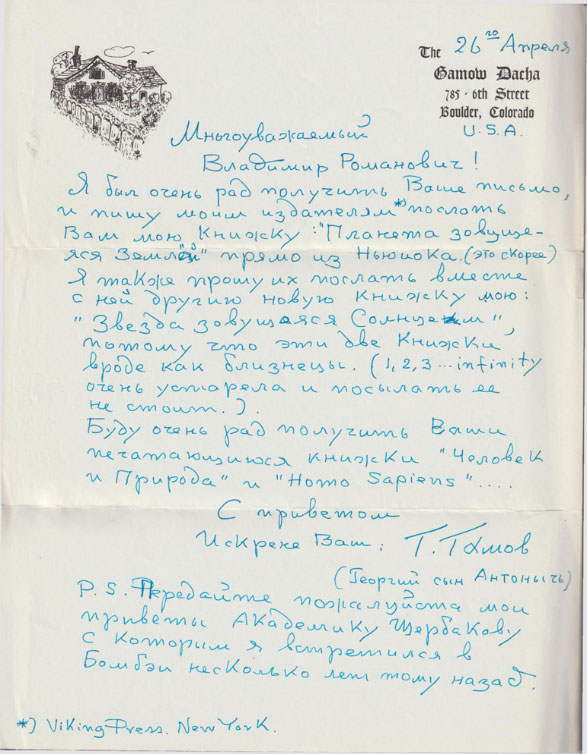 The 26го Апреля
Gamow Dacha
785 · 6th Street
Boulder, Colorado
U.S.A.
Многоуважаемый
Владимир Романович!
Я был очень рад получить Ваше письмо,
и пишу моим издателям*) послать
Вам мою Книжку: "Планета зовуще-
яся Землёй" прямо из Ньюиока. (это скорее)
Я также прошу их послать вместе
с ней другию новую Книжку мою:
"Звезда зовущаяся Солнцем",
потому что эти две Книжки
вроде как близнецы. (1, 2, 3 ... infinity
очень устарела и посылать ее
не стоит.).
Буду очень рад получить Ваши
печатающиюся книжки "Человек
и Природа" и "Homo Sapiens"....
С приветом
Искрене Ваш: Г. Гамов
(Георгий сын Антоныч)
P.S. Передайте пожалуйста мои
приветы Академику Щербакову
с Которым я встретился в
Бомбэи несколько лет тому назад.
*) Viking Press. New York.